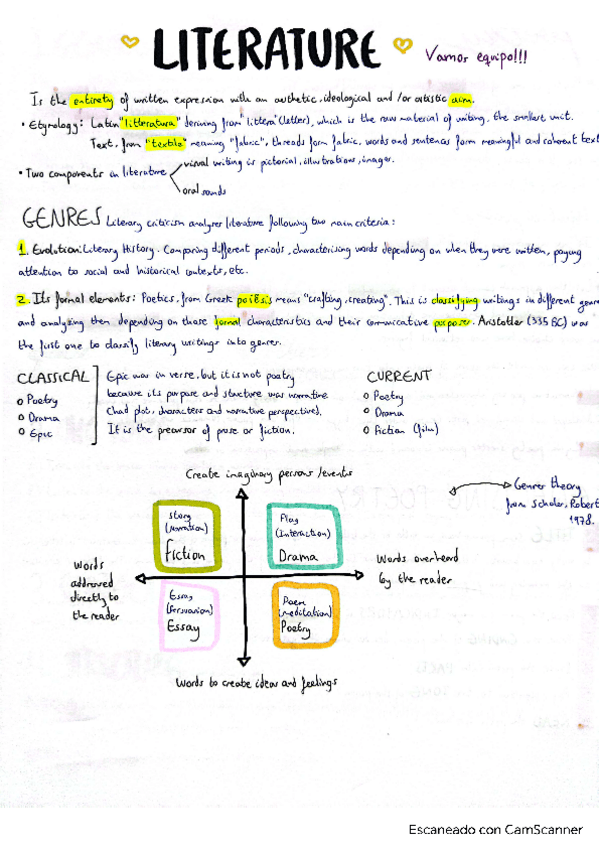 LITERATURE
Vamos equipo!!!
Is the entirety of written expression with an aesthetic, ideological and/or artistic aim.
• Etymology: Latin "litteratura" deriving from "littera" (letter), which is the raw material of writing, the smallest unit.
Text, from "textila" meaning "fabric", threads form fabric, words and sentences form meaningful and coherent text
• Two components in literature
visual writing is pictorial, illustrations, images.
oral sounds
GENRES Literary criticism analyses literature following two main criteria:
1. Evolution: Literary History. Comparing different periods, characterising words depending on when they were written, paying
attention to social and historical contexts, etc.
2. Its formal elements: Poetics, from Greek poiēsis means "crafting, creating". This is classifying writings in different genre
and analysing them depending on those formal characteristics and their comunicative purposes. Aristotles (335 BC) was
the first one to classify literary writings into genres.
CLASSICAL
o Poetry
o Drama
o Epic
Epic was in verse, but it is not poetry
because its purpose and structure was narrative
(had plot, characters and narrative perspective).
It is the precursor of prose or fiction.
CURRENT
o Poetry
o Drama
o Fiction (film)
Create imaginary persons/events
Genres theory
from Scholes, Robert
1978.
Story
(Narration)
Fiction
Play
(Interaction)
Drama
Words
addressed
directly to
the reader
Words overheard
by the reader
Essay
(Persuasion)
Essay
Poem
(meditation)
Poetry
Words to create ideas and feelings
Escaneado con CamScanner